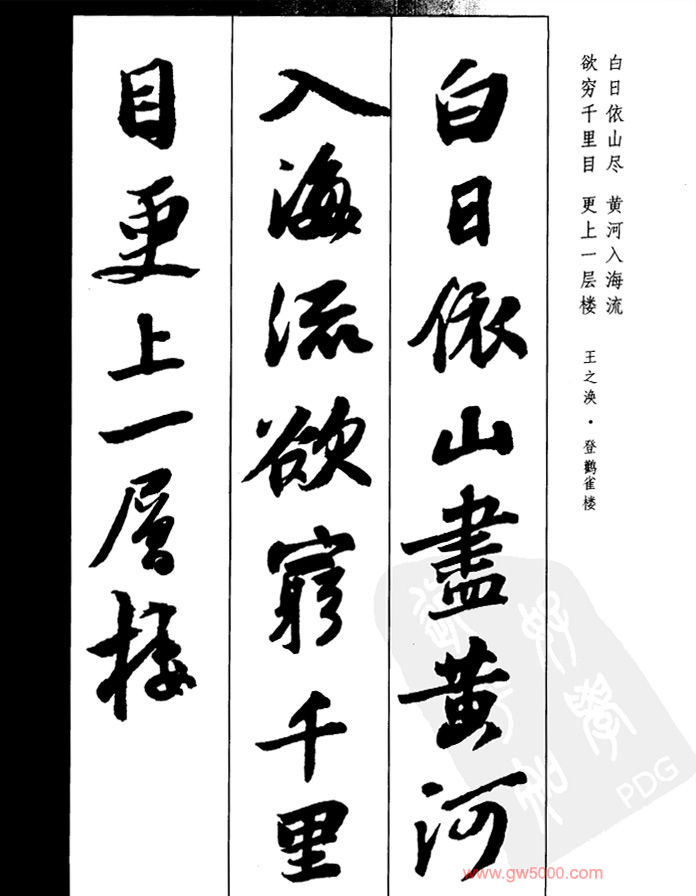 白日依山尽 黄河入海流
欲穷千里目 更上一层楼
王之涣·登鹳雀楼
白日依山盡黄河
入海流欲窮千里
目更上一層楼
PDG
www.gw5000.com